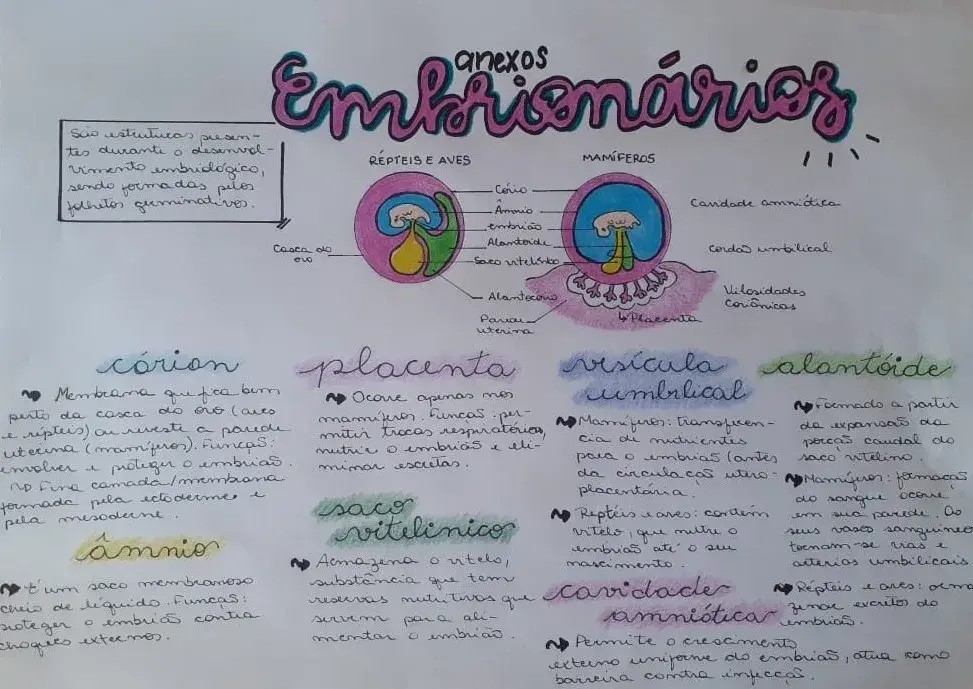 anexos
Embrionários
São estruturas presen-
tes durante o desenvol-
vimento embriológico,
sendo formadas pelos
folhetos germinativos.
RÉPTEIS E AVES
MAMÍFEROS
Cório
Âmnio
embrião
Alantoide
Saco vitelínico
Alantocório
Casca do
ovo
Parede
uterina
Placenta
Cavidade amniótica
Cordão umbilical
Vilosidades
Coriônicas
córion
Membrana que fica bem
perto da casca do ovo (aves
e répteis) ou reveste a parede
uterina (mamíferos). Função:
envolver e proteger o embrião.
Fina camada/membrana
formada pela ectoderme e
pela mesoderme.
âmnio
É um saco membranoso
cheio de líquido. Função:
proteger o embrião contra
choques externos.
placenta
Ocorre apenas nos
mamíferos. Função: per-
mitir trocas respiratórias,
nutrir o embrião e eli-
minar escretas.
saco
vitelinico
Armazena o vitelo,
substância que tem
reservas nutritivas que
servem para ali-
mentar o embrião.
vesícula
umbilical
Mamíferos: transferen-
cia de nutrientes
para o embrião (antes
da circulação utero-
placentária.
Reptéis e aves: contém
vitelo, que nutre o
embrião até o seu
nascimento.
cavidade
amniótica
Permite o crescimento
externo uniforme do embrião, atua como
barreira contra infecção.
alantóide
Formado a partir
da expansão da
porção caudal do
saco vitelino.
Mamíferos: formação
do sangue ocorre
em sua parede. Os
seus vasos sanguíneos
tornam-se vias e
artérias umbilicais
Répteis e aves: arma
zenar excritos do
embrião.